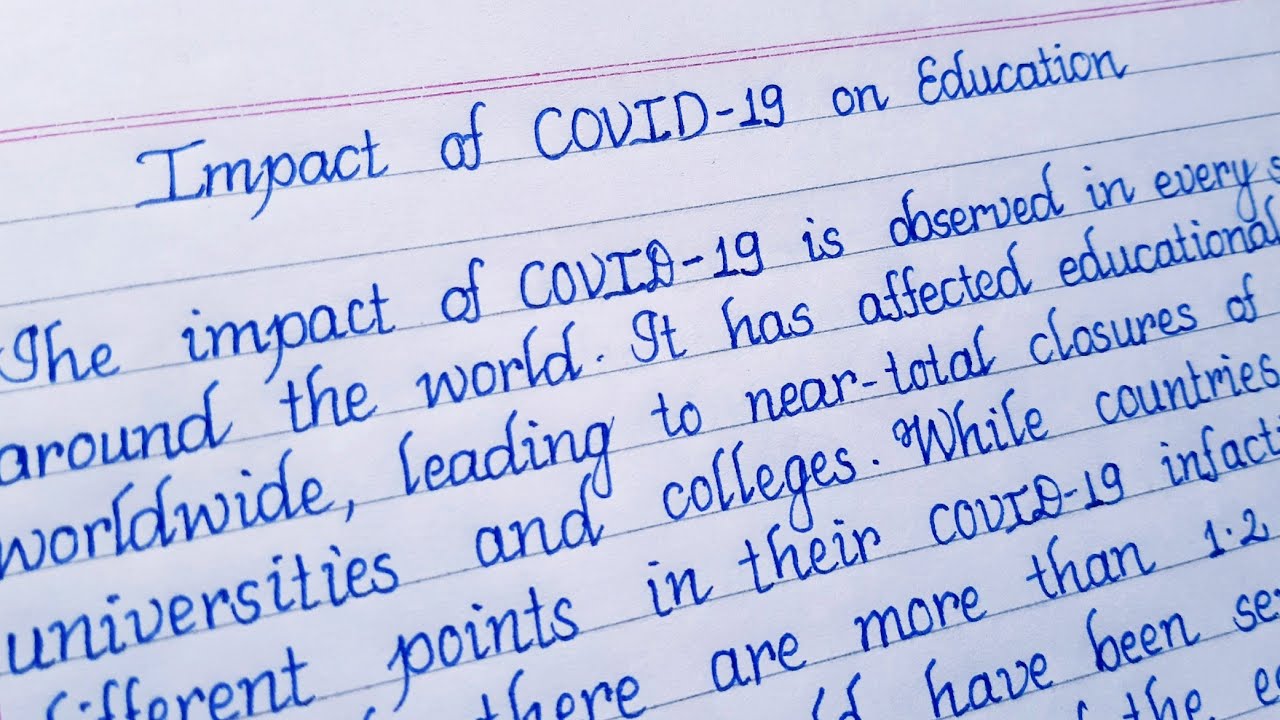 Impact of COVID-19 on Education
The impact of COVID-19 is observed in every
around the world. It has affected educational
worldwide, leading to near-total closures of
universities and colleges. While countries
different points in their COVID-19
there are more than 1.2
have been
the